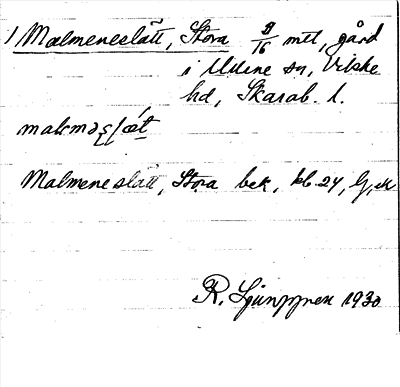 1 Malmeneslätt, Stora 5/16 mtl, gård
i Uttene sn, Vilske
hd, Skarab. l.
Malmeneslätt, Stora bek, kb. 24, G, ek
R. Ljunggren 1930